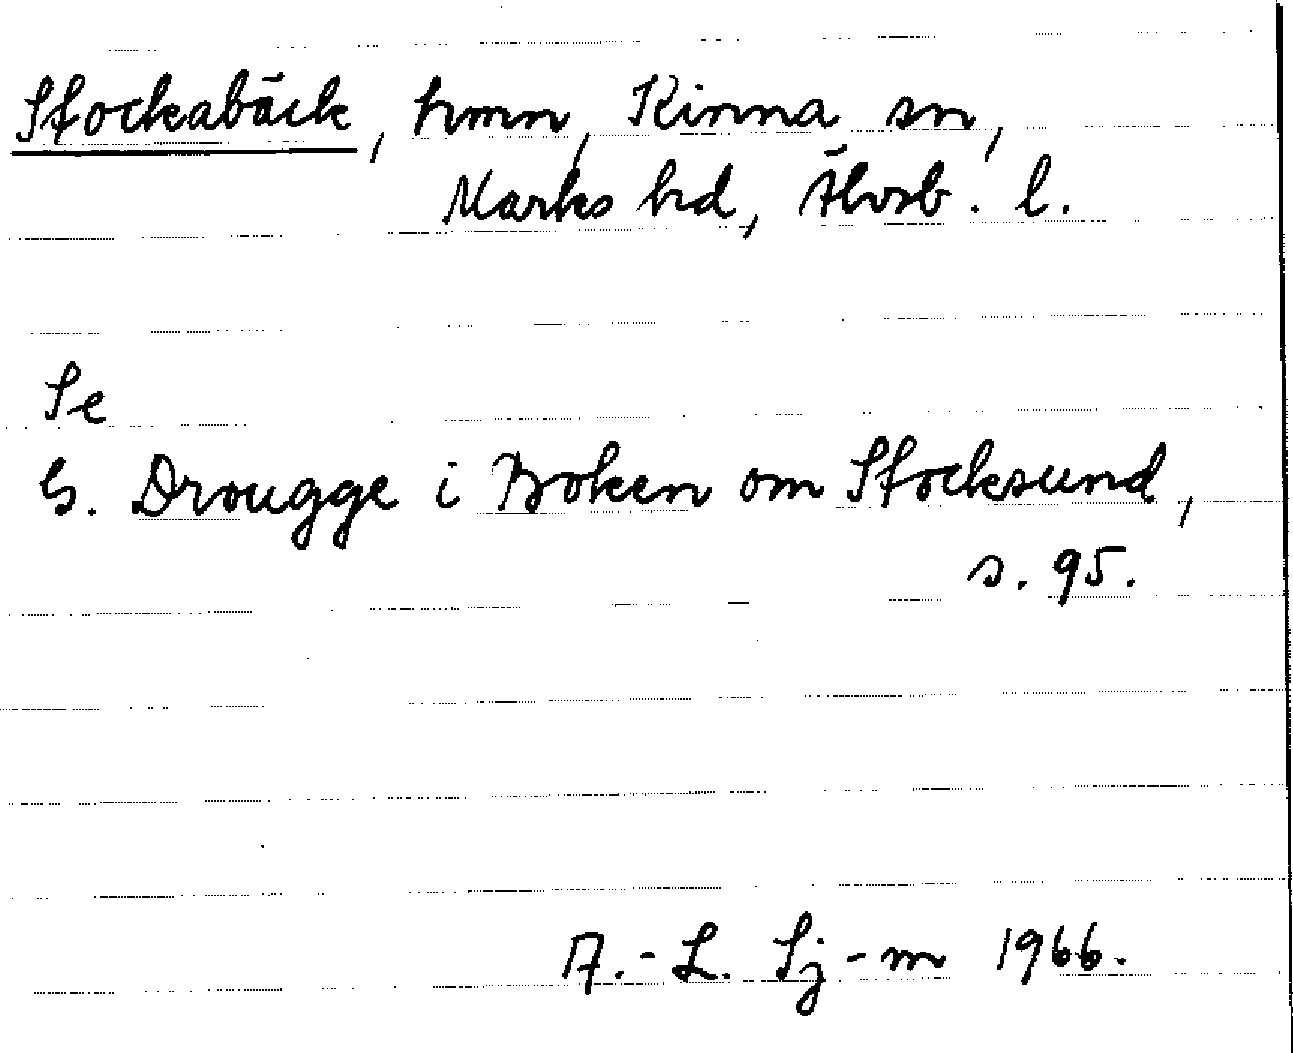 Stockabäck, hmn, Kinna sn,
Marks hd, Älvsb. l.
Se
G. Drougge i Boken om Stocksund,
s. 95.
A.-L. Sj-m 1966.